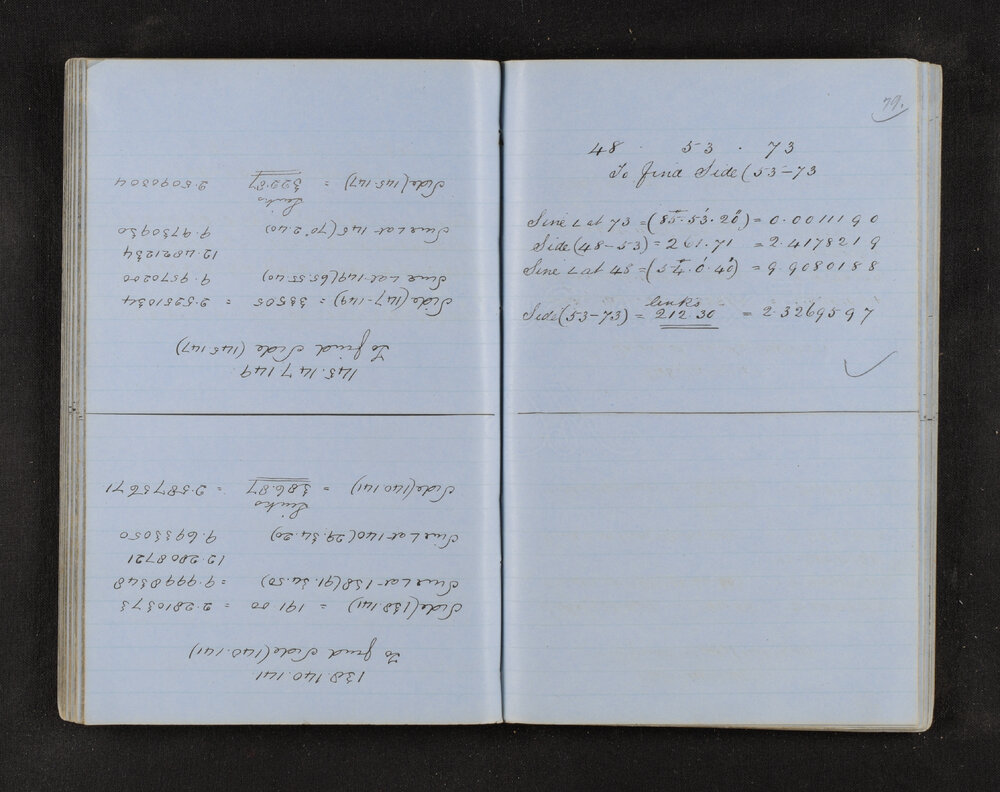 138.140.141
To find Side (140.141)
Side (138.141) = 191.00 = 2.2810373
Sine L at 138 (91.34.50) = 9.9998348
12.2808721
Sine L at 140 (29.34.20) 9.6933050
Links
Side (140.141) = 386.87 = 2.5875671
145.147.149
To find Side (145.147)
Side (147-149) = 335.05 = 2.5251034
Sine L at 149 (65.55.40) 9.9570200
12.4821234
Sine L at 145 (70°2.40) 9.9730930
Links
Side (145.147) = 322.87 2.5090304
79.
48 . 53 . 73
To find Side (53-73
Sine L at 73 = (85°.53'.20") = 0.0011190
Side (48-53) = 261.71 = 2.4178219
Sine L at 48 = (54°.0'.40") = 9.9080188
links
Side (53-73) = 212.30 = 2.3269597